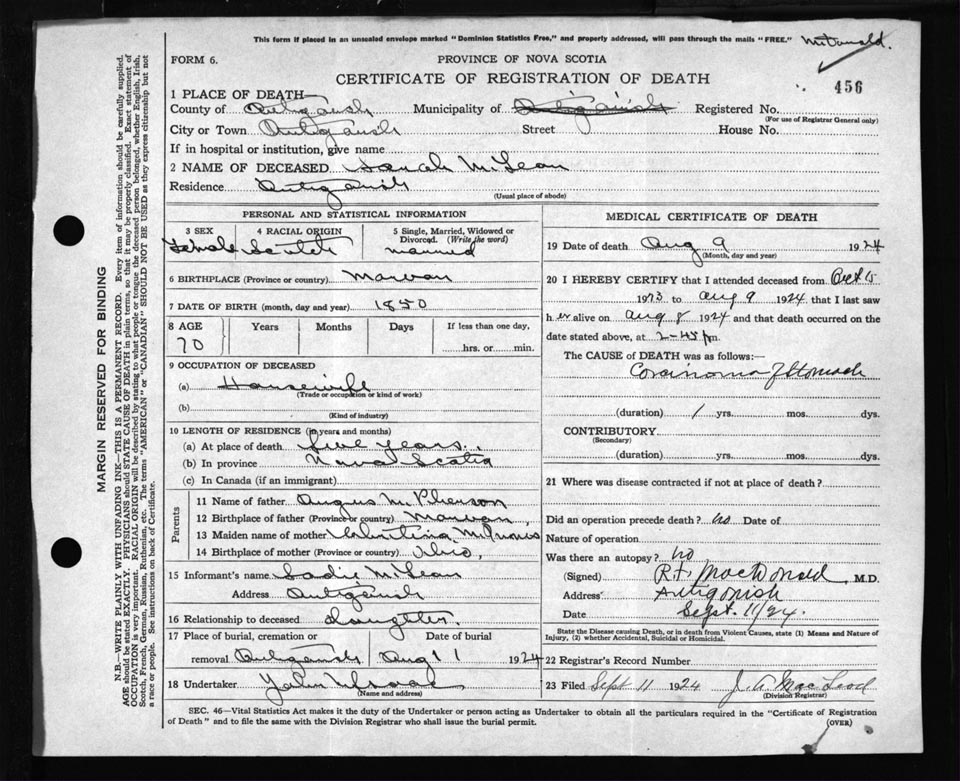 This form if placed in an unsealed envelope marked "Dominion Statistics Free," and properly addressed, will pass through the mails "FREE."
McDonald.
FORM 6.
PROVINCE OF NOVA SCOTIA
CERTIFICATE OF REGISTRATION OF DEATH
456
1 PLACE OF DEATH—
County of Antigonish Municipality of Antigonish Registered No.
(For use of Registrar General only)
City or Town Antigonish Street House No.
If in hospital or institution, give name
2 NAME OF DECEASED Sarah McLean
Residence Antigonish
(Usual place of abode)
PERSONAL AND STATISTICAL INFORMATION
3 SEX 4 RACIAL ORIGIN 5 Single, Married, Widowed or Divorced. (Write the word)
Female Scotch married
6 BIRTHPLACE (Province or country)
7 DATE OF BIRTH (month, day and year) 1850
8 AGE Years Months Days If less than one day,
70 hrs. or min.
9 OCCUPATION OF DECEASED
(a) Housewife
(Trade or occupation or kind of work)
(b)
(Kind of industry)
10 LENGTH OF RESIDENCE (in years and months)
(a) At place of death five years.
(b) In province Nova Scotia
(c) In Canada (if an immigrant)
Parents
11 Name of father Angus McPherson
12 Birthplace of father (Province or country)
13 Maiden name of mother McInnis
14 Birthplace of mother (Province or country)
15 Informant's name Sadie McLean
Address Antigonish
16 Relationship to deceased daughter.
17 Place of burial, cremation or removal Antigonish Date of burial Aug 11 1924
18 Undertaker John
(Name and address)
MEDICAL CERTIFICATE OF DEATH
19 Date of death Aug 9 1924
(Month, day and year)
20 I HEREBY CERTIFY that I attended deceased from Oct
1923 to Aug 9 1924 that I last saw
h er alive on Aug 8 1924 and that death occurred on the
date stated above, at 2-45 pm.
The CAUSE OF DEATH was as follows:—
Carcinoma of Stomach
(duration) 1 yrs. mos. dys.
CONTRIBUTORY
(Secondary)
(duration) yrs. mos. dys.
21 Where was disease contracted if not at place of death?
Did an operation precede death? no Date of
Nature of operation
Was there an autopsy? no
(Signed) R.F. MacDonald M.D.
Address Antigonish
Date Sept. 11/24.
State the Disease causing Death, or in death from Violent Causes, state (1) Means and Nature of Injury, (2) whether Accidental, Suicidal or Homicidal.
22 Registrar's Record Number
23 Filed Sept 11 1924 J. A. MacLeod
(Division Registrar)
SEC. 46—Vital Statistics Act makes it the duty of the Undertaker or person acting as Undertaker to obtain all the particulars required in the "Certificate of Registration of Death" and to file the same with the Division Registrar who shall issue the burial permit.
(OVER)
MARGIN RESERVED FOR BINDING
N.B.—WRITE PLAINLY WITH UNFADING INK—THIS IS A PERMANENT RECORD. Every item of information should be carefully supplied.
AGE should be stated EXACTLY. PHYSICIANS should STATE CAUSE OF DEATH in plain terms, so that it may be properly classified. Exact statement of
OCCUPATION is very important. RACIAL ORIGIN will be described by stating to what people or tongue the deceased person belonged, whether English, Irish,
Scotch, French, German, Russian, Ruthenian, etc. The terms "AMERICAN" or "CANADIAN" SHOULD NOT BE USED as they express citizenship but not
a race or people. See instructions on back of Certificate.